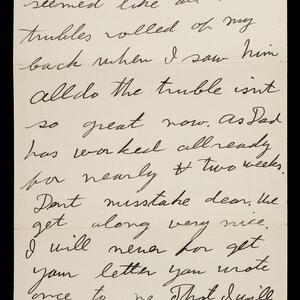 seemed like all
trubles rolled of my
back when I saw him
all do the truble isnt
so great now. As Dad
has worked allready
for nearly two weeks.
Dont misstake dear. We
get along very nice.
I will never for get
your letter you wrote
once to me That I will